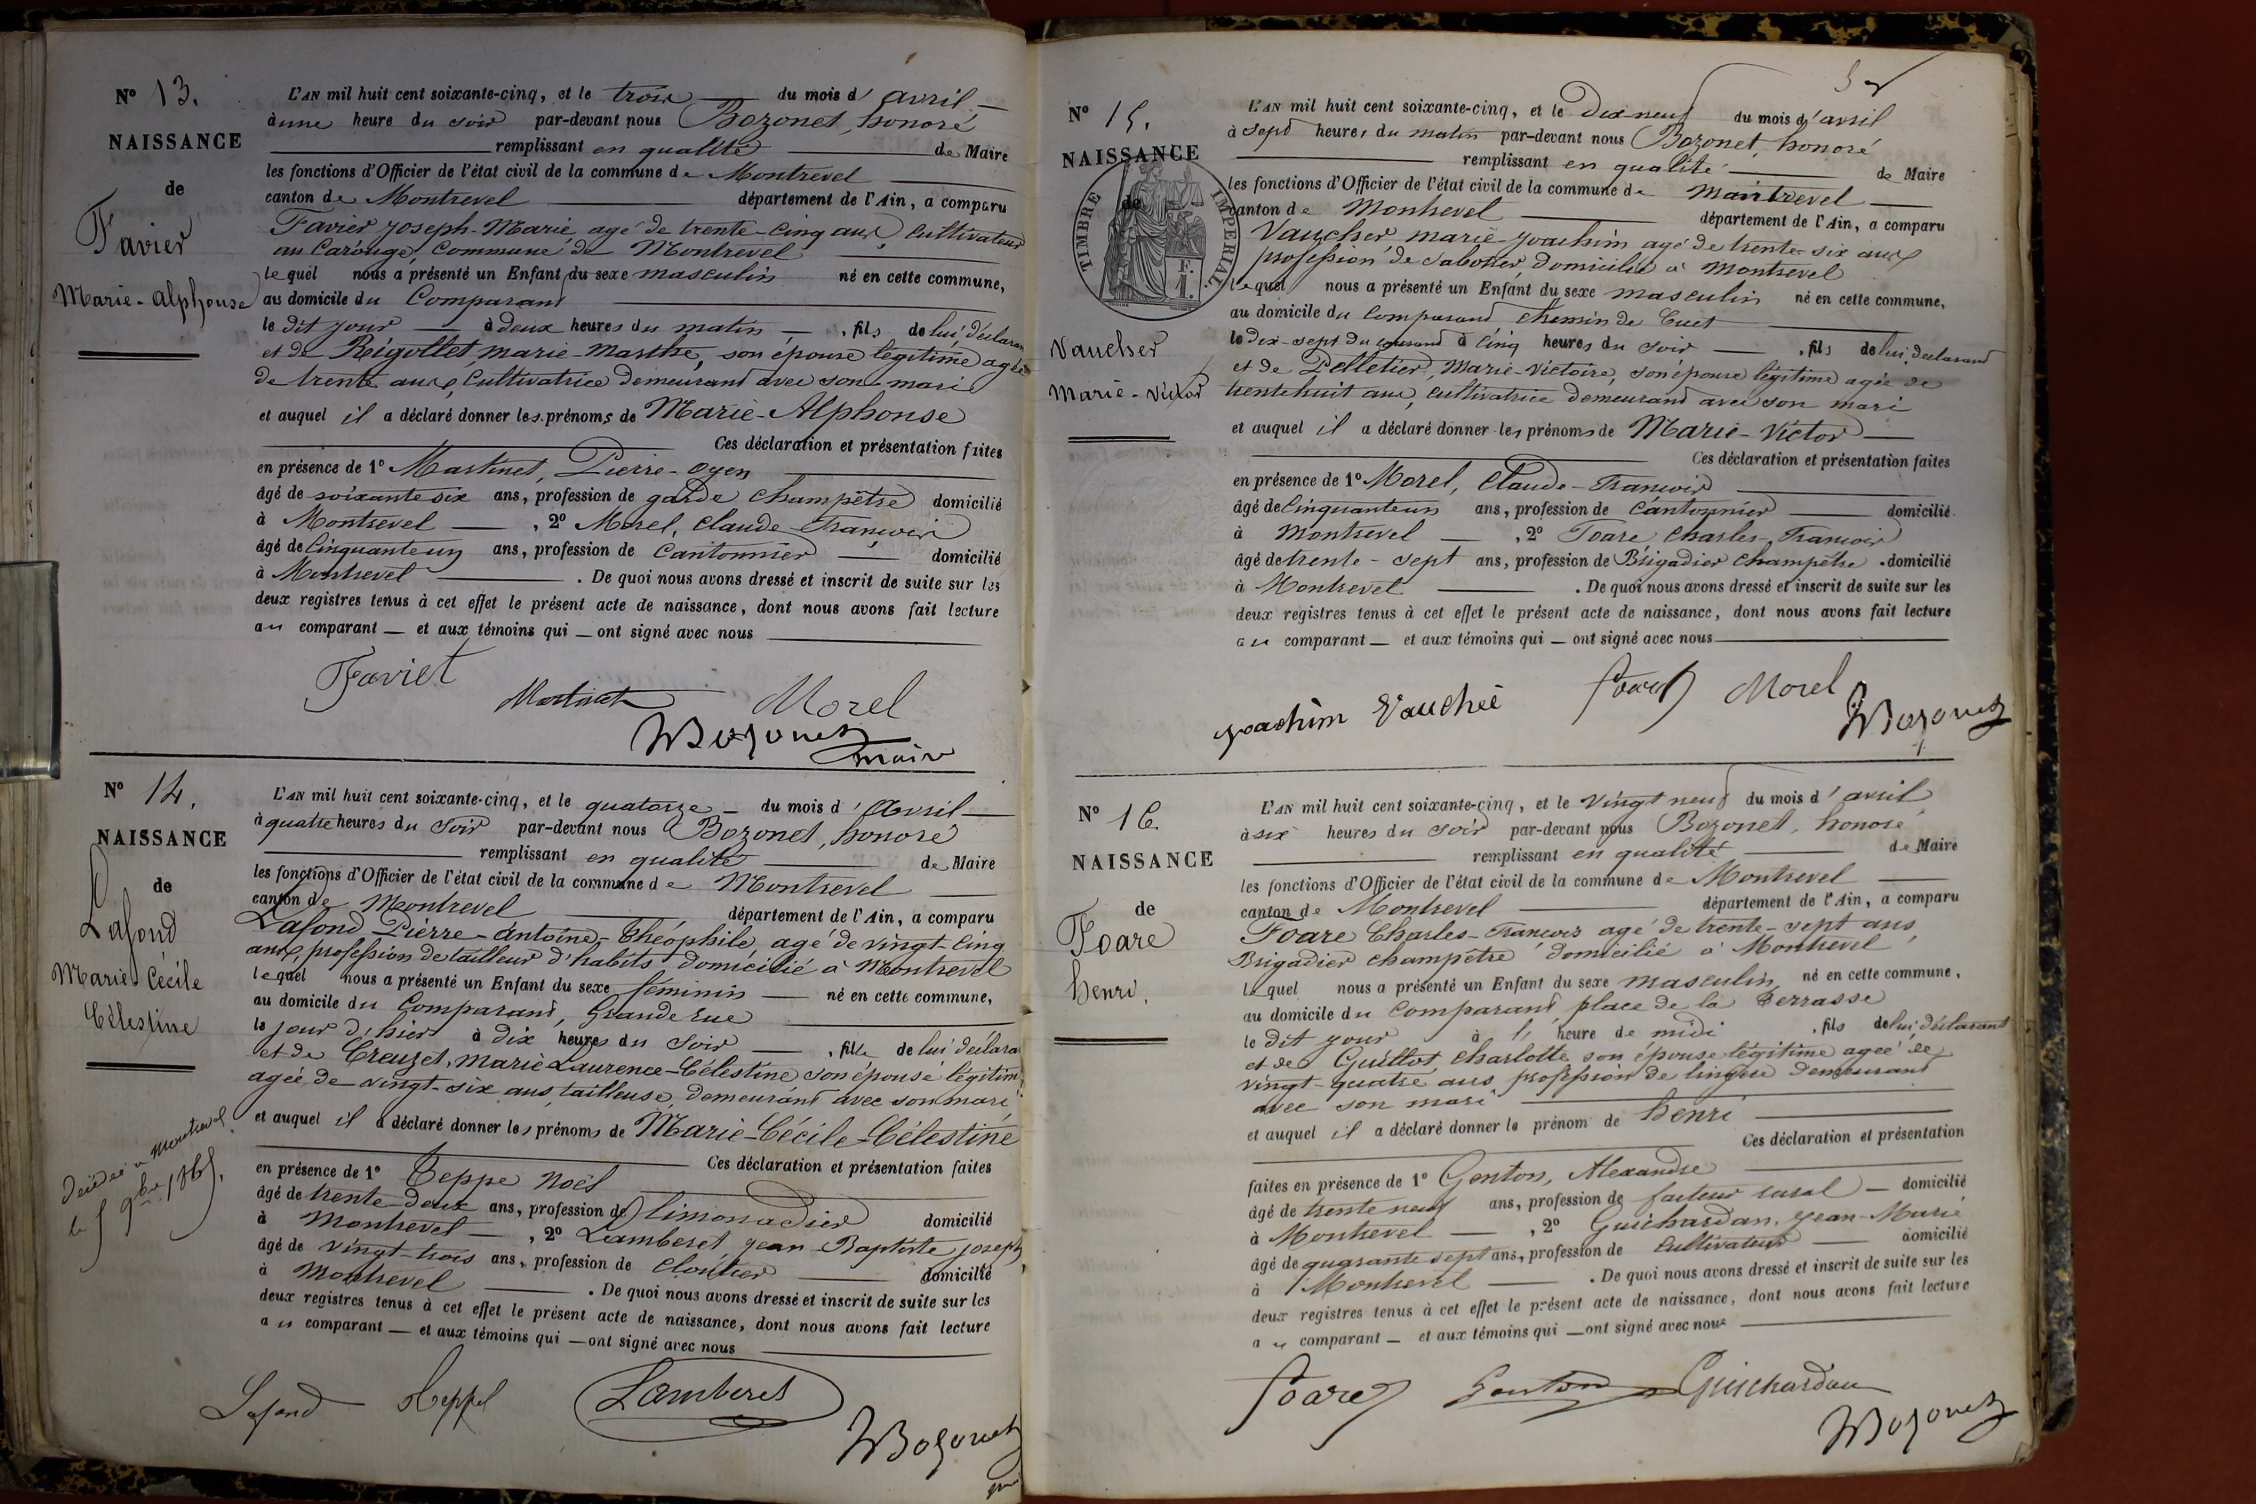 N° 13.
NAISSANCE
de
Favier
Marie-Alphonse
L'AN mil huit cent soixante-cinq, et le trois du mois d'avril
à une heure du soir par-devant nous Bozonet, honoré
remplissant en qualité de Maire
les fonctions d'Officier de l'état civil de la commune de Montrevel
canton de Montrevel département de l'Ain, a comparu
Favier Joseph-Marie agé de trente-cinq ans, cultivateur
au Carouge, Commune de Montrevel
lequel nous a présenté un Enfant du sexe masculin né en cette commune,
au domicile du Comparant
le dit jour à deux heures du matin, fils de lui, déclarant
et de Régollet, marie-marthe, son épouse légitime agée
de trente ans, Cultivatrice demeurant avec son mari
et auquel il a déclaré donner les prénoms de Marie-Alphonse
Ces déclaration et présentation faites
en présence de 1° Martinet, Pierre-Oyen
âgé de soixante six ans, profession de garde champêtre domicilié
à Montrevel, 2° Morel, Claude-françois
âgé de Cinquante un ans, profession de Cantonnier domicilié
à Montrevel. De quoi nous avons dressé et inscrit de suite sur les
deux registres tenus à cet effet le présent acte de naissance, dont nous avons fait lecture
au comparant et aux témoins qui ont signé avec nous
Faviet
Martinet Morel
Bozonet
maire
N° 14.
NAISSANCE
de
Lafond
Marie Cécile
Célestine
Décédée à montrevel
le 5 9bre 1865.
L'AN mil huit cent soixante-cinq, et le quatorze du mois d'Avril
à quatre heures du soir par-devant nous Bozonet, honoré
remplissant en qualité de Maire
les fonctions d'Officier de l'état civil de la commune de Montrevel
canton de Montrevel département de l'Ain, a comparu
Lafond Pierre-Antoine-Théophile, agé de vingt-cinq
ans, profession de tailleur d'habits domicilié à Montrevel
lequel nous a présenté un Enfant du sexe féminin né en cette commune,
au domicile du Comparant, Grande Rue
le jour d'hier à dix heures du soir, fille de lui déclarant
et de Creuzet, Marie Laurence-Célestine son épouse légitime
agée de vingt-six ans, tailleuse, demeurant avec son mari
et auquel il a déclaré donner les prénoms de Marie-Cécile-Célestine
Ces déclaration et présentation faites
en présence de 1° Teppe Noël
âgé de trente deux ans, profession de limonadier domicilié
à Montrevel, 2° Lamberet, Jean-Baptiste, joseph
âgé de vingt-trois ans, profession de Cloutier domicilié
à Montrevel. De quoi nous avons dressé et inscrit de suite sur les
deux registres tenus à cet effet le présent acte de naissance, dont nous avons fait lecture
au comparant et aux témoins qui ont signé avec nous
Lafond Teppe Lamberet
Bozonet
N° 15.
NAISSANCE
de
TIMBRE IMPERIAL
Vaucher
Marie-Victor
L'AN mil huit cent soixante-cinq, et le Dix-neuf du mois d'avril
à sept heures du matin par-devant nous Bozonet, honoré
remplissant en qualité de Maire
les fonctions d'Officier de l'état civil de la commune de Montrevel
canton de Montrevel département de l'Ain, a comparu
Vaucher, marie-joachim agé de trente-six ans
profession de sabotier, domicilié à Montrevel
lequel nous a présenté un Enfant du sexe masculin né en cette commune,
au domicile du Comparant chemin de Cuet
le Dix-sept du courant à Cinq heures du soir, fils de lui, declarant
et de Pelletier, Marie-Victoire, son épouse légitime agée de
trente huit ans, Cultivatrice demeurant avec son mari
et auquel il a déclaré donner les prénoms de Marie-Victor
Ces déclaration et présentation faites
en présence de 1° Morel, Claude-François
âgé de Cinquante un ans, profession de Cantonnier domicilié
à Montrevel, 2° Foare Charles-François
âgé de trente-sept ans, profession de Brigadier champêtre. domicilié
à Montrevel. De quoi nous avons dressé et inscrit de suite sur les
deux registres tenus à cet effet le présent acte de naissance, dont nous avons fait lecture
au comparant et aux témoins qui ont signé avec nous
joachim Vauchée foare Morel
Bozonet
N° 16.
NAISSANCE
de
Foare
henri.
L'AN mil huit cent soixante-cinq, et le vingt neuf du mois d'avril
à six heures du soir par-devant nous Bozonet, honoré
remplissant en qualité de Maire
les fonctions d'Officier de l'état civil de la commune de Montrevel
canton de Montrevel département de l'Ain, a comparu
Foare Charles-François agé de trente-sept ans,
Brigadier champêtre domicilié à Montrevel
lequel nous a présenté un Enfant du sexe masculin, né en cette commune,
au domicile du Comparant, place de la Terrasse
le dit jour à l' heure de midi, fils de lui, déclarant
et de Guillot Charlotte son épouse légitime agée de
vingt-quatre ans, profession de lingère demeurant
avec son mari
et auquel il a déclaré donner le prénom de henri
Ces déclaration et présentation
faites en présence de 1° Genton, Alexandre
âgé de trente neuf ans, profession de facteur rural domicilié
à Montrevel, 2° Guichardan, Jean-Marie
âgé de quarante sept ans, profession de Cultivateur domicilié
à Montrevel. De quoi nous avons dressé et inscrit de suite sur les
deux registres tenus à cet effet le présent acte de naissance, dont nous avons fait lecture
au comparant et aux témoins qui ont signé avec nous
foare Genton Guichardan
Bozonet